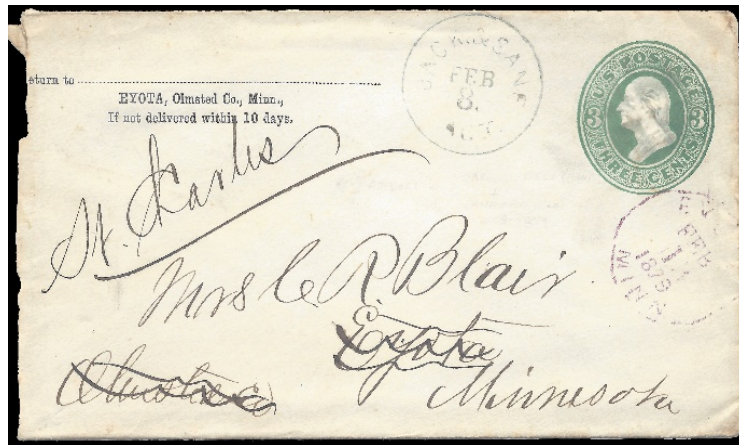 eturn to
EYOTA, Olmsted Co., Minn.,
If not delivered within 10 days.
JACK. & SANF.
FEB
8.
U.S. POSTAGE
3 3
THREE CENTS
St. Charles
FEB
1879
MINN
Mrs C R. Blair
Eyota
Olmsted Co
Minnesota